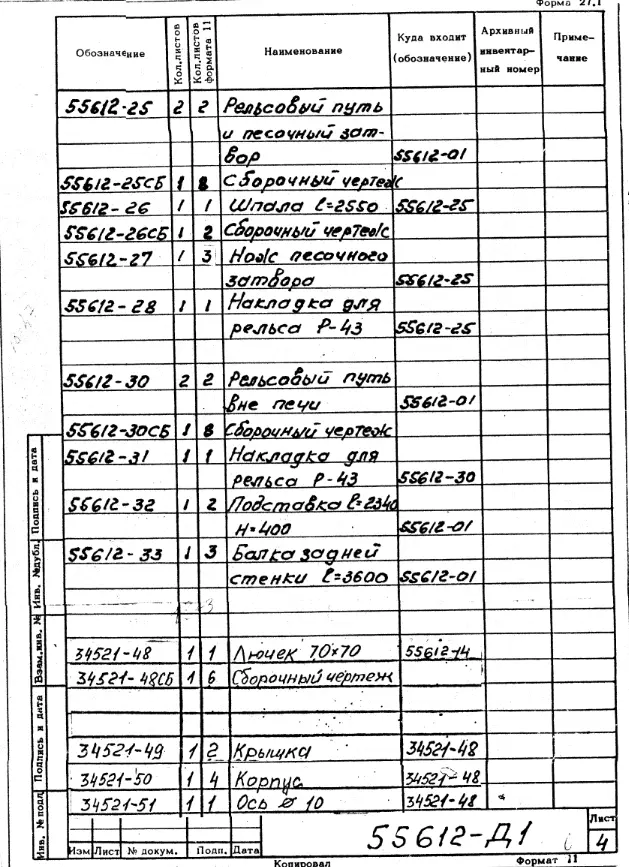 Форма 27.1
Обозначение Кол.листов Кол.листов формата 11 Наименование Куда входит (обозначение) Архивный инвентарный номер Примечание
55612-25 2 2 Рельсовый путь
и песочный зат-
вор 55612-01
55612-25СБ 1 8 Сборочный чертеж
55612-26 1 1 Шпала ℓ=2550 55612-25
55612-26СБ 1 2 Сборочный чертеж
55612-27 1 3 Нож песочного
затвора 55612-25
55612-28 1 1 Накладка для
рельса Р-43 55612-25
55612-30 2 2 Рельсовый путь
вне печи 55612-01
55612-30СБ 1 8 Сборочный чертеж
55612-31 1 1 Накладка для
рельса Р-43 55612-30
55612-32 1 2 Подставка ℓ=2340
H=400 55612-01
55612-33 1 3 Балка задней
стенки ℓ=3600 55612-01
34521-48 1 1 Лючек 70×70 55612-14
34521-48СБ 1 6 Сборочный чертеж
34521-49 1 2 Крышка 34521-48
34521-50 1 4 Корпус 34521-48
34521-51 1 1 Ось ⌀ 10 34521-48
Инв. № подл. Подпись и дата Взам.инв. № Инв. №дубл. Подпись и дата
Изм Лист № докум. Подп. Дата
55612-Д1
Лист
4
Копировал Формат 11